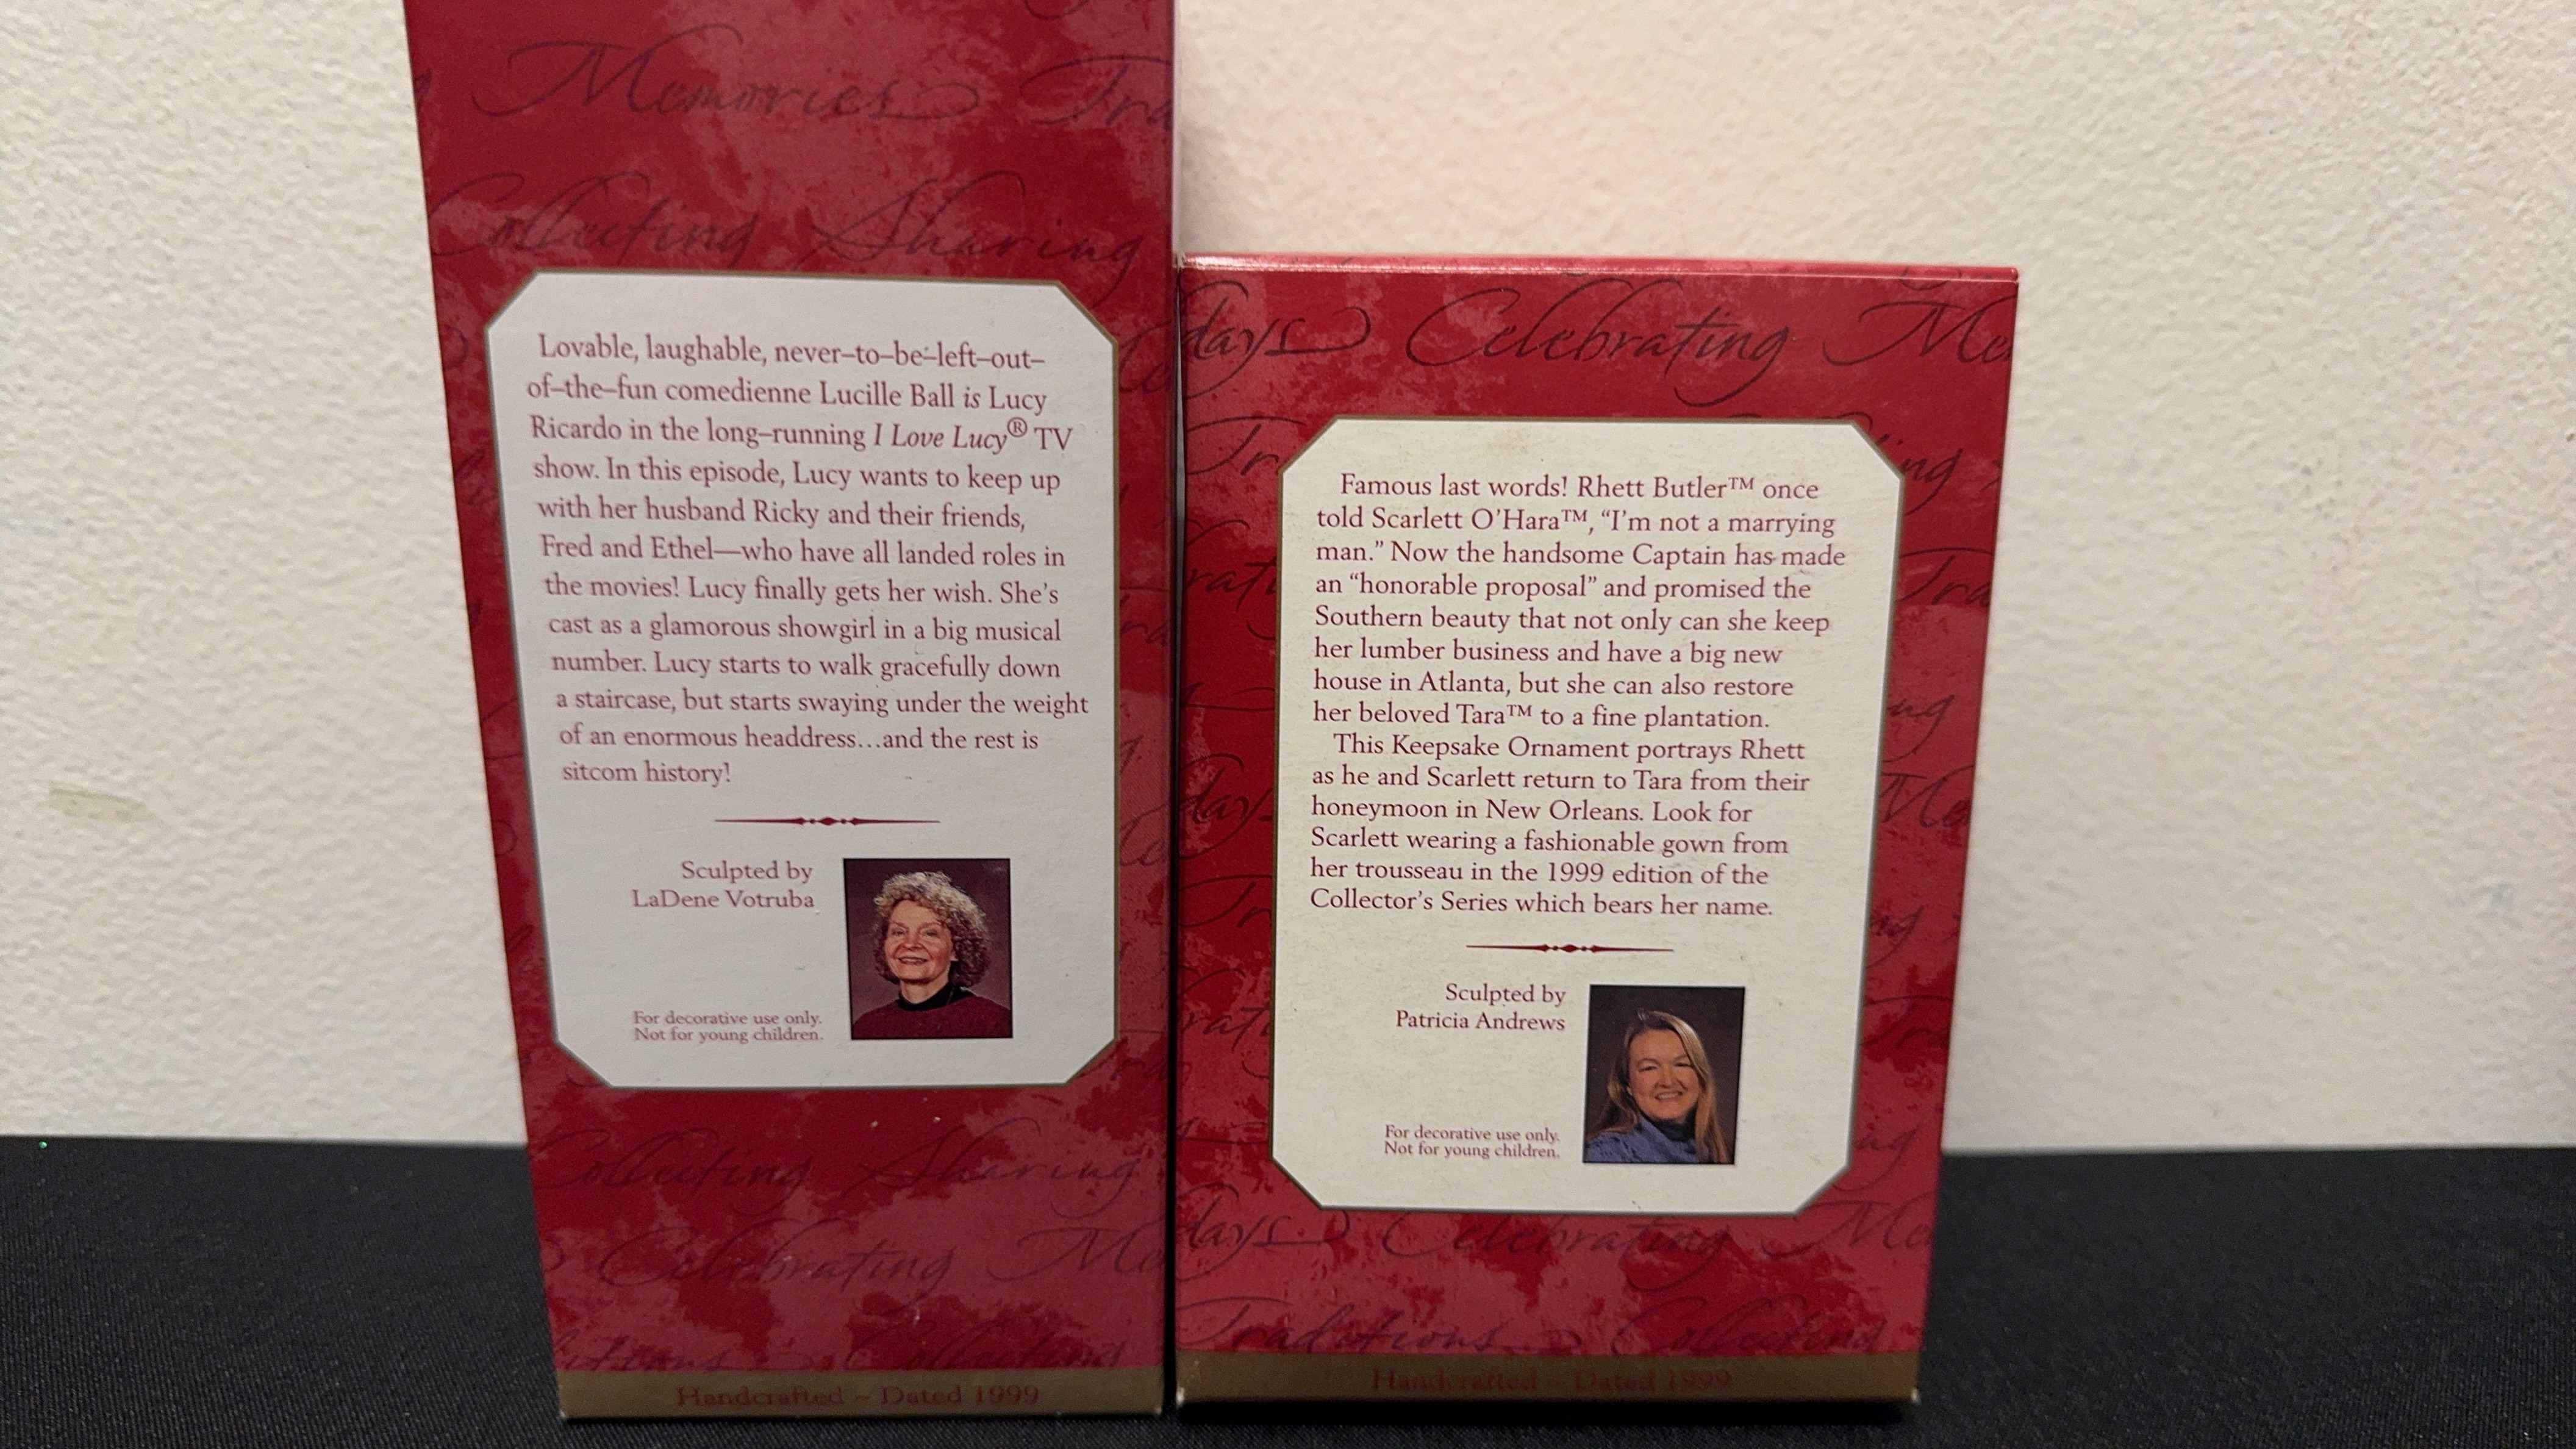 Memories Tra
Collecting Sharing
Lovable, laughable, never–to–be–left–out–
of–the–fun comedienne Lucille Ball is Lucy
Ricardo in the long–running I Love Lucy® TV
show. In this episode, Lucy wants to keep up
with her husband Ricky and their friends,
Fred and Ethel—who have all landed roles in
the movies! Lucy finally gets her wish. She's
cast as a glamorous showgirl in a big musical
number. Lucy starts to walk gracefully down
a staircase, but starts swaying under the weight
of an enormous headdress...and the rest is
sitcom history!
Sculpted by
LaDene Votruba
For decorative use only.
Not for young children.
Collecting Sharing
Celebrating Me
Collecting
Handcrafted ~ Dated 1999
days Celebrating Me
Famous last words! Rhett Butler™ once
told Scarlett O'Hara™, “I'm not a marrying
man.” Now the handsome Captain has made
an “honorable proposal” and promised the
Southern beauty that not only can she keep
her lumber business and have a big new
house in Atlanta, but she can also restore
her beloved Tara™ to a fine plantation.
This Keepsake Ornament portrays Rhett
as he and Scarlett return to Tara from their
honeymoon in New Orleans. Look for
Scarlett wearing a fashionable gown from
her trousseau in the 1999 edition of the
Collector's Series which bears her name.
Sculpted by
Patricia Andrews
For decorative use only.
Not for young children.
days Celebrating Me
Traditions Collecting
Handcrafted ~ Dated 1999